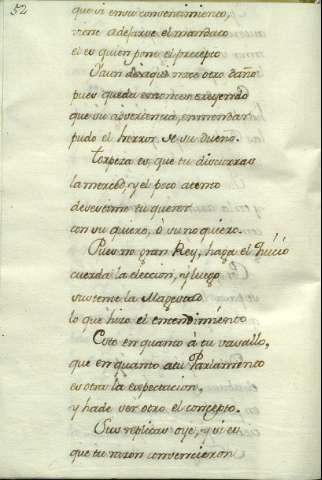 52
que si en su convencimiento,
viene a dejarse el mandato
el es quien pone el precepto
Y aun de aquí nace otro daño
pues queda entonces creyendo
que su advertencia, enmendar
pudo el herror, de su dueño.
Torpeza es, que tu discurras
la merced, y el poco acento
con su quiero, ò su no quiero.
Pues no gran Rey, haga el Juicio
cuerda la eleccion, y luego
sustente la Magestad
lo que hizo el entendimiento
Esto en quanto à tu vasallo,
que en quanto a tu Parlamento
es otra la expectacion,
y ha de ver otro el concepto.
Sus replicas oye, y si es
que tu razon convencieron